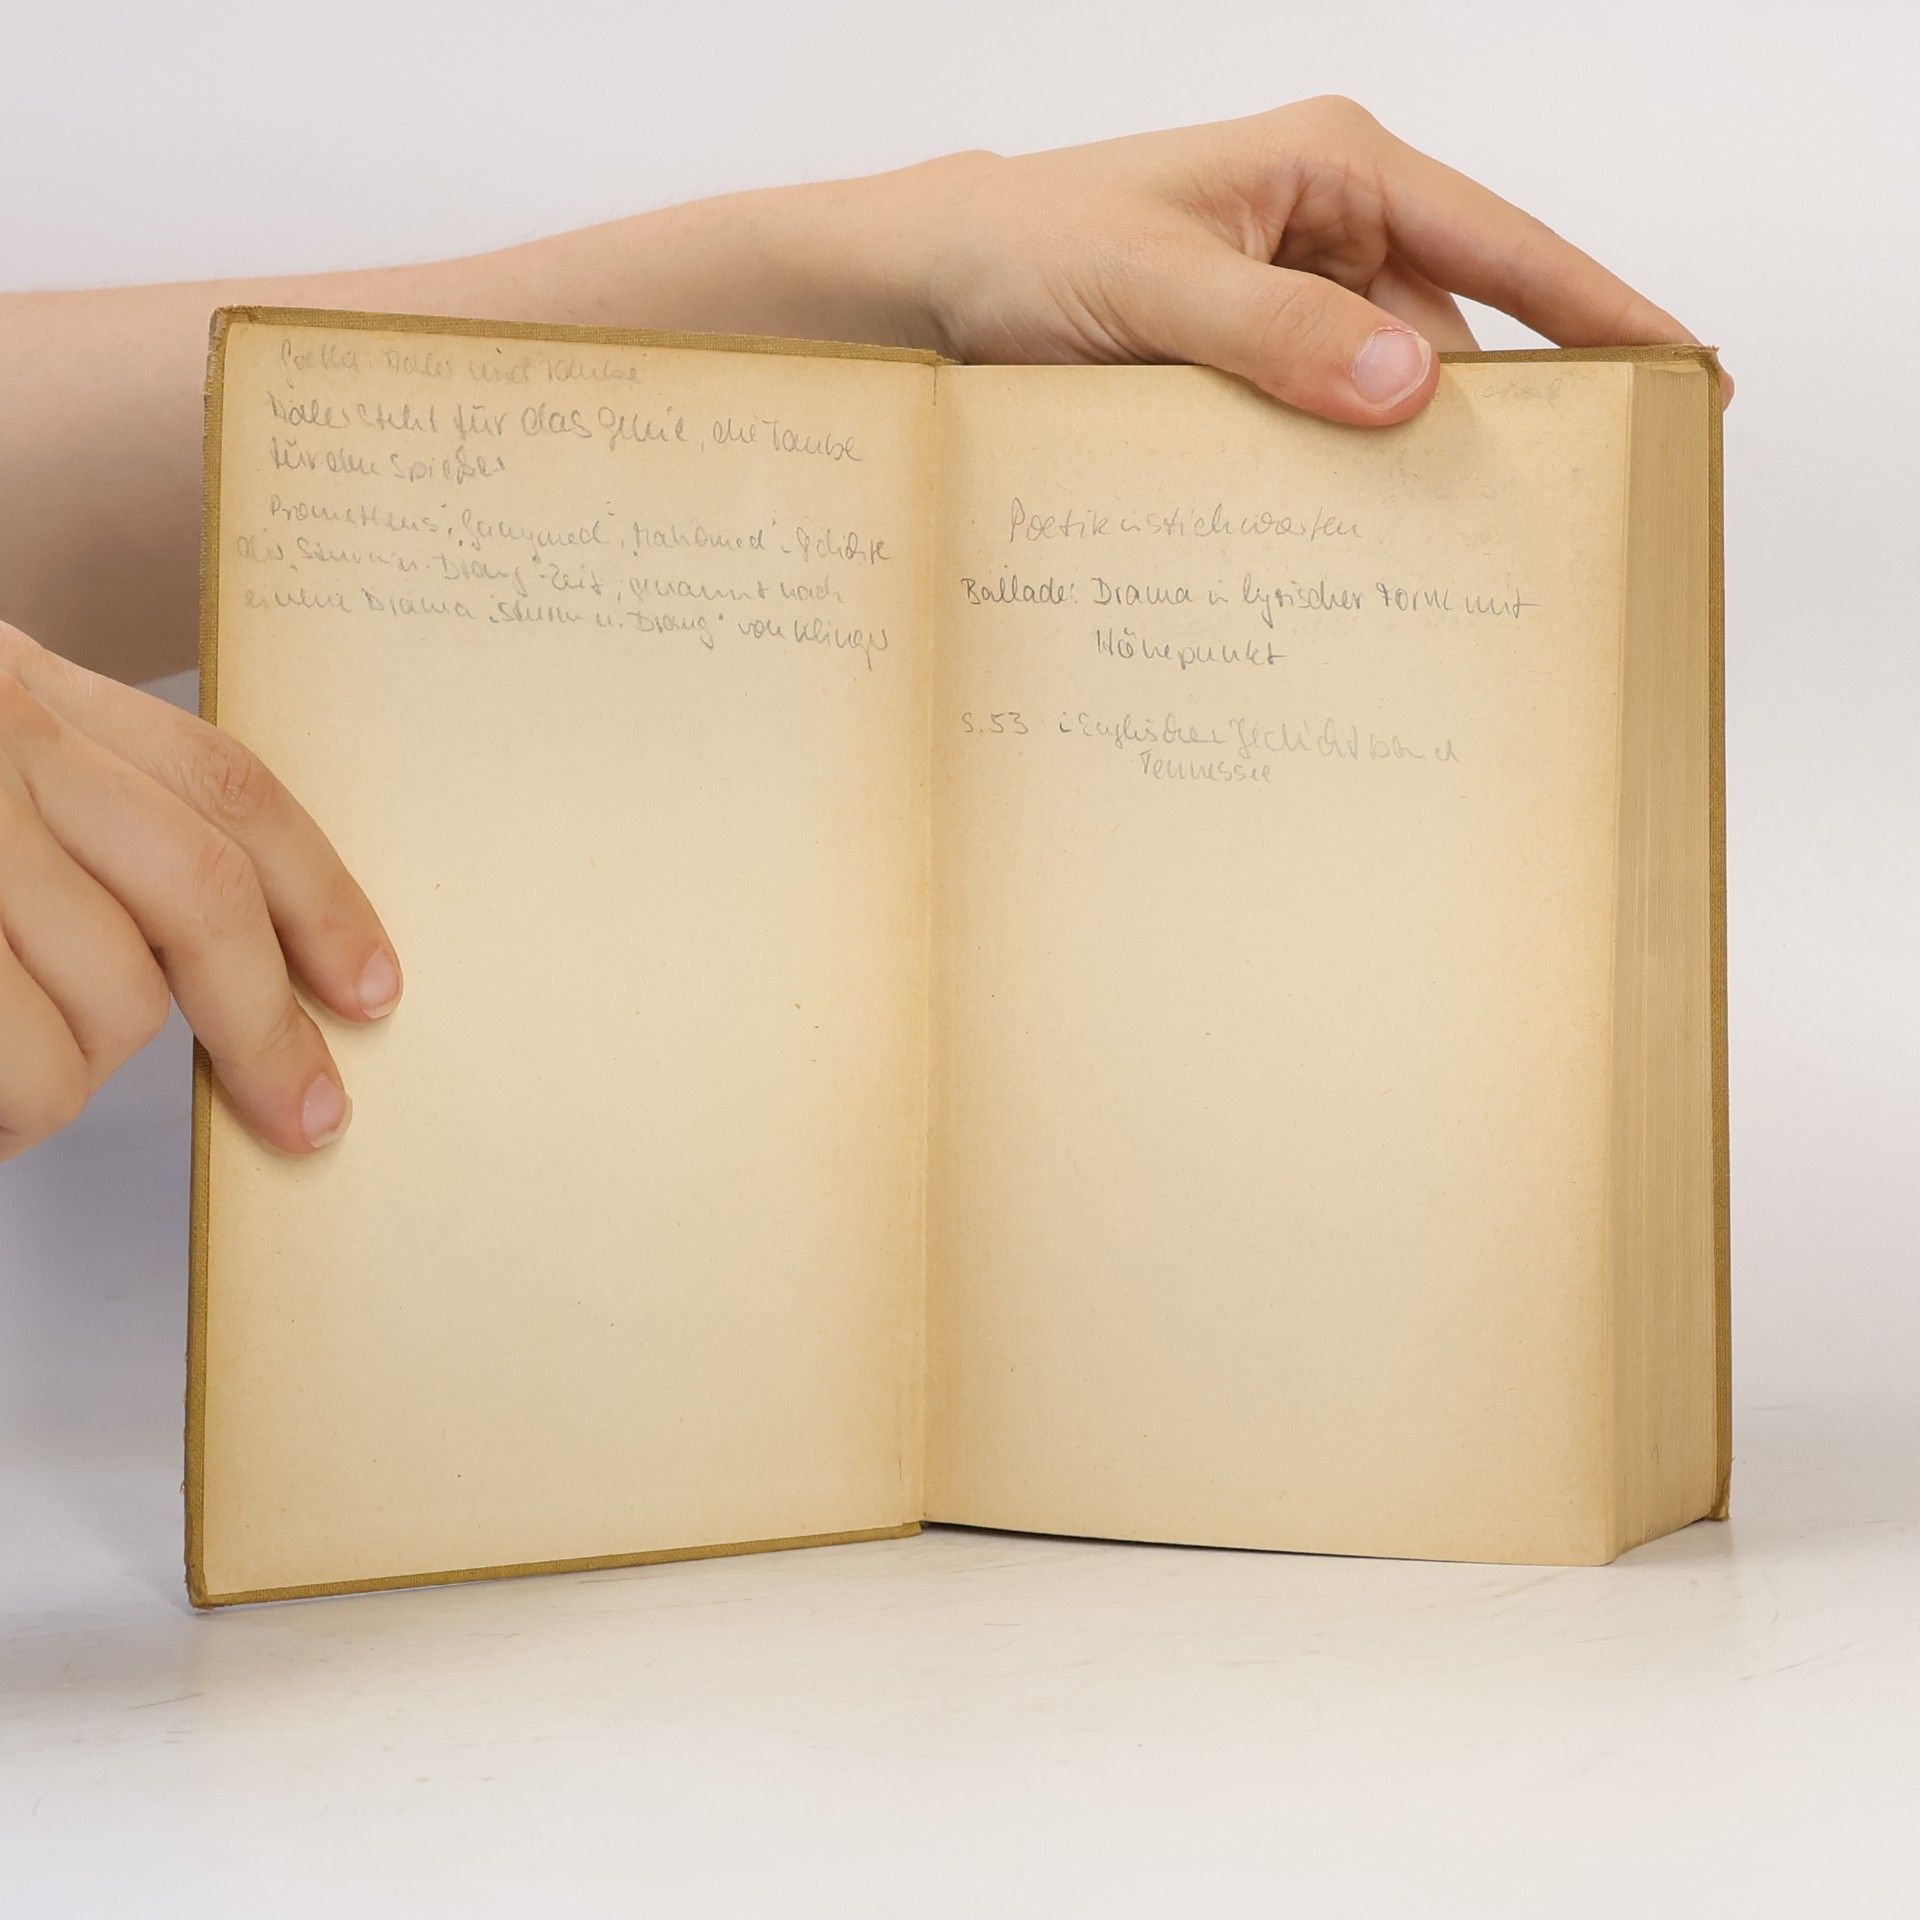 Goethe: Adler und Taube
Adler steht für das Genie, die Taube
für den Spießer
"Prometheus", "Ganymed", "Mahomed": Gedichte
der "Sturm u. Drang"-Zeit, genannt nach
einem Drama "Sturm u. Drang" von Klinger
Poetik in Stichworten
Ballade: Drama in lyrischer Form mit
Höhepunkt
S. 53 : Englisches Gedicht
Tennessee